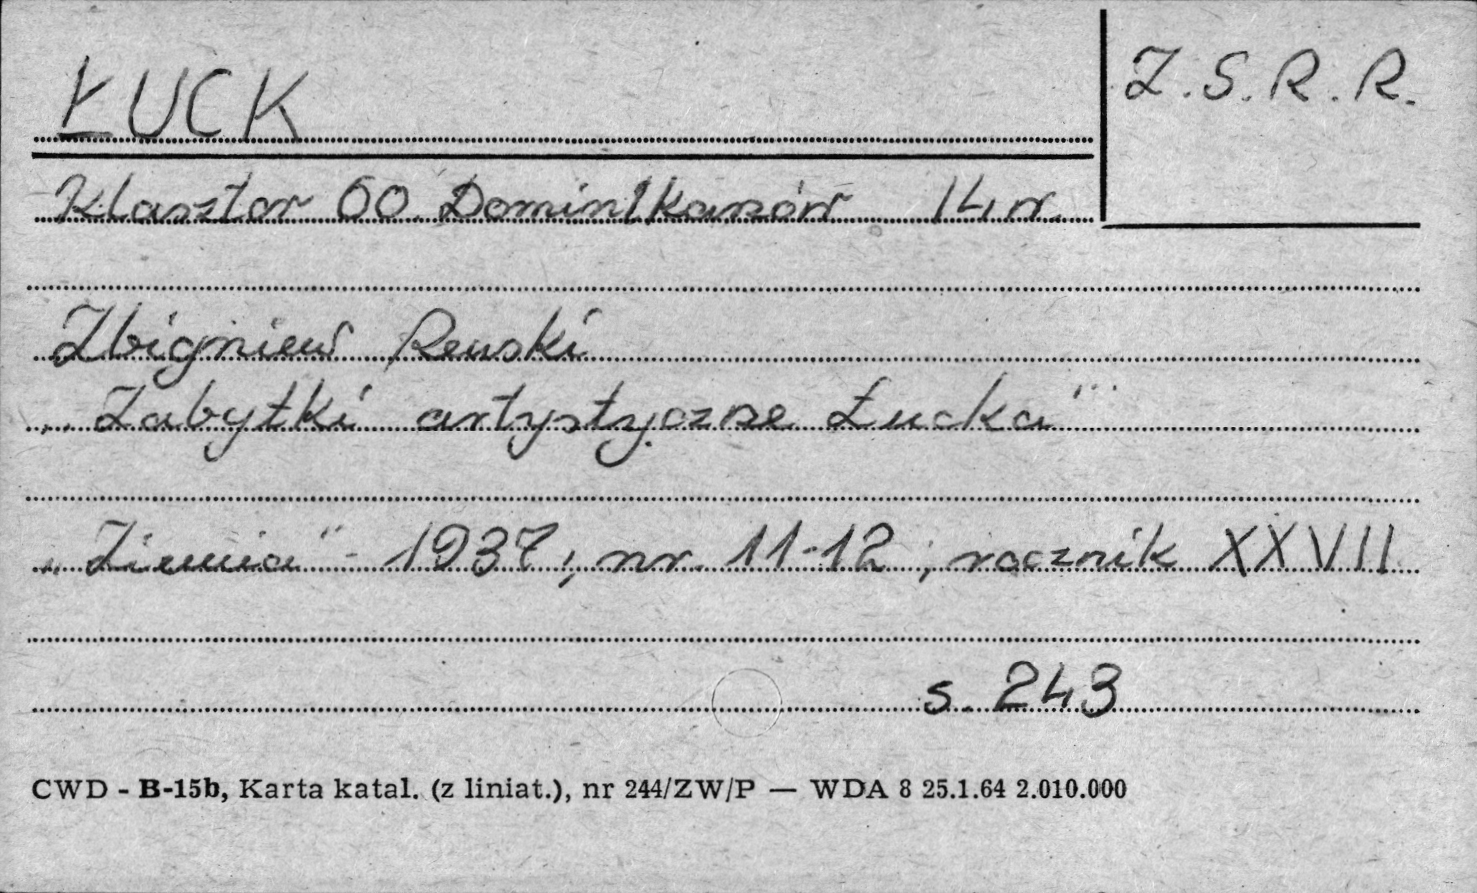 ŁUCK
Z.S.R.R.
Klasztor OO. Dominikanów 14 w.
Zbigniew Rewski
„Zabytki artystyczne Łucka"
„Ziemia" - 1937; nr. 11-12; rocznik XXVII
s. 243
CWD - B-15b, Karta katal. (z liniat.), nr 244/ZW/P — WDA 8 25.1.64 2.010.000